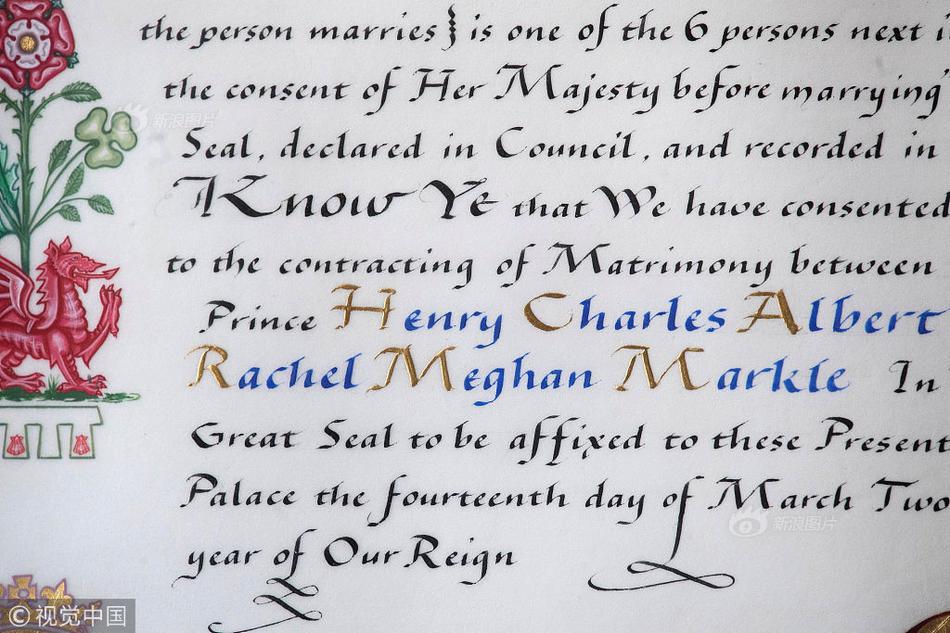 the person marries } is one of the 6 persons next
the consent of Her Majesty before marrying
新浪图片
Seal, declared in Council, and recorded in
Know Ye that We have consented
to the contracting of Matrimony between
Prince Henry Charles Albert
Rachel Meghan Markle In
Great Seal to be affixed to these Present
Palace the fourteenth day of March Two
新浪图片
year of Our Reign
© 视觉中国